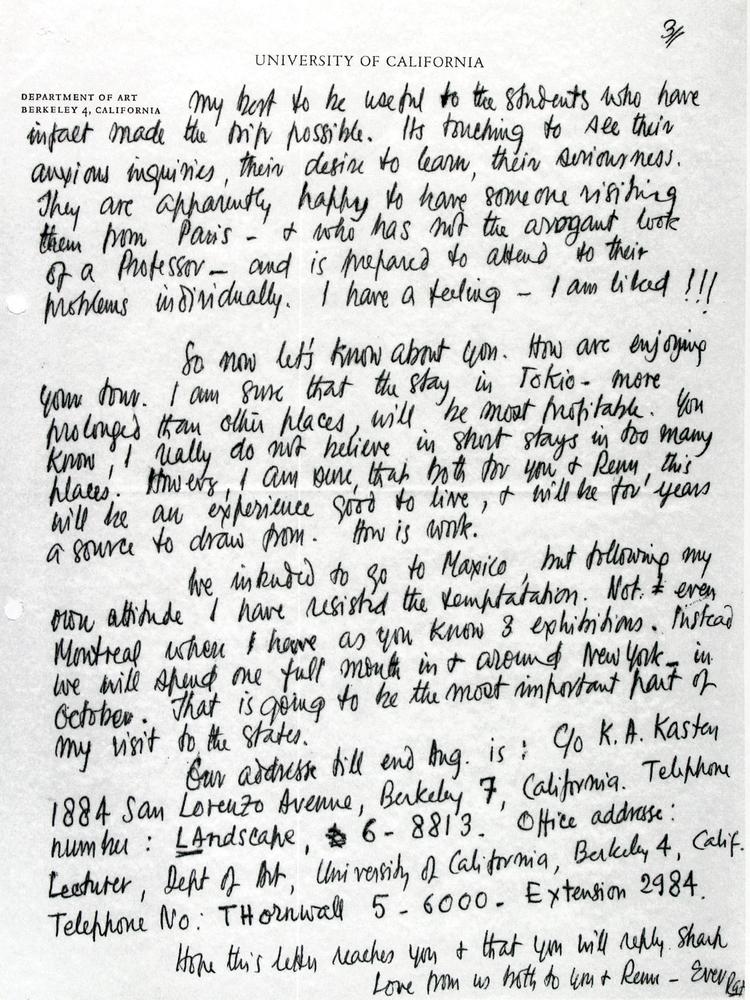 3/
UNIVERSITY OF CALIFORNIA
DEPARTMENT OF ART
BERKELEY 4, CALIFORNIA
my best to be useful to the students who have
infact made the trip possible. Its touching to see their
anxious inquiries, their desire to learn, their seriousness.
They are apparently happy to have someone visiting
them from Paris - & who has not the arrogant look
of a Professor - and is prepared to attend to their
problems individually. I have a feeling - I am liked !!!
So now let's know about you. How are enjoying
your tour. I am sure that the stay in Tokio - more
prolonged than other places, will be most profitable. You
know, I really do not believe in short stays in too many
places. However, I am sure, that both for you & Renu, this
will be an experience good to live, & will be for years
a source to draw from. How is work.
We intended to go to Maxico, but following my
own attitude I have resisted the temptatation. Not even
Montreal where I have as you know 3 exhibitions. Instead
we will spend one full month in & around New York - in
October. That is going to be the most important part of
my visit to the States.
Our addresse till end Aug. is : C/o K.A. Kasten
1884 San Lorenzo Avenue, Berkeley 7, California. Telephone
number : LAndscape, 6 - 8813. Office addresse :
Lecturer, Dept of Art, University of California, Berkeley 4, Calif.
Telephone No: THornwall 5 - 6000 - Extension 2984.
Hope this letter reaches you & that you will reply.
Love from us both to you & Renu - Ever